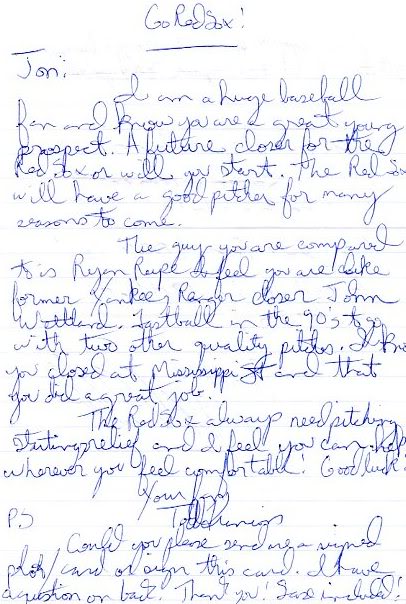 Go Red Sox!
Jon:
I am a huge baseball
fan and know you are a great young
prospect. A future closer for the
Red Sox or will you start. The Red Sox
will have a good pitcher for many
seasons to come.
The guy you are compared
to is Ryan I feel you are like
former Yankee, Ranger closer John
Wettland. Fastball in the 90's to go
with two other quality pitches. I know
you closed at Mississippi St and that
you did a great job.
The Red Sox always need pitching
Starting, relief and I feel you can help
wherever you feel comfortable! Good luck!
Your fan,
P.S
Could you please send me a signed
photo/card or sign this card. I have
a question on back. Thank you! Sase included!